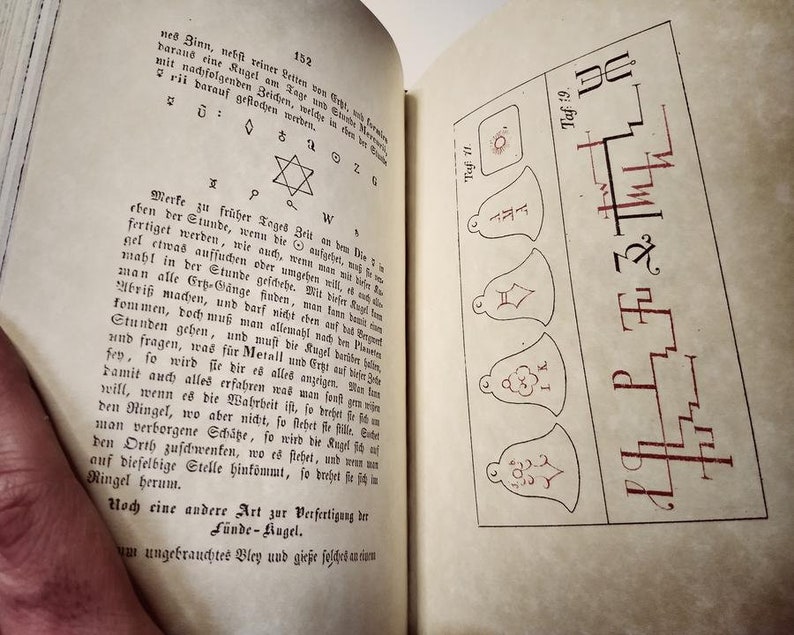 152
nes Zinn, nebst reiner Letten von Ertzt, und formire
daraus eine Kugel am Tage und Stunde Mercurii,
mit nachfolgenden Zeichen, welche in eben der Stunde
☿ rii darauf gestochen werden.
☉ Z G
W
Merke zu früher Tages Zeit an dem Die ☿ in
eben der Stunde, wenn die ☉ aufgehet, muß sie ver-
fertiget werden, wie auch, wenn man mit dieser Ku-
gel etwas aufsuchen oder umgehen will, es auch alle-
mahl in der Stunde geschehe. Mit dieser Kugel kann
man alle Ertz-Gänge finden, man kann damit einen
Abriß machen, und darf nicht eben auf das Bergwerk
kommen, doch muß man allemahl nach den Planeten
Stunden gehen, und mußt die Kugel darüber halten,
und fragen, was für Metall und Ertzt auf dieser Zeche
sey, so wird sie dir es alles anzeigen. Man kann
damit auch alles erfahren was man sonst gern wißen
will, wenn es die Wahrheit ist, so drehet sie sich um
den Ringel, wo aber nicht, so stehet sie stille. Suchet
man verborgene Schätze, so wird die Kugel sich auf
den Orth zuschwenken, wo es stehet, und wenn man
auf dieselbige Stelle hinkömmt, so drehet sie sich im
Ringel herum.
Noch eine andere Art zur Verfertigung der
Fünde-Kugel.
ungebrauchtes Bley und gieße solches an einem
Taf: 11.
I K
Taf: 19.
P